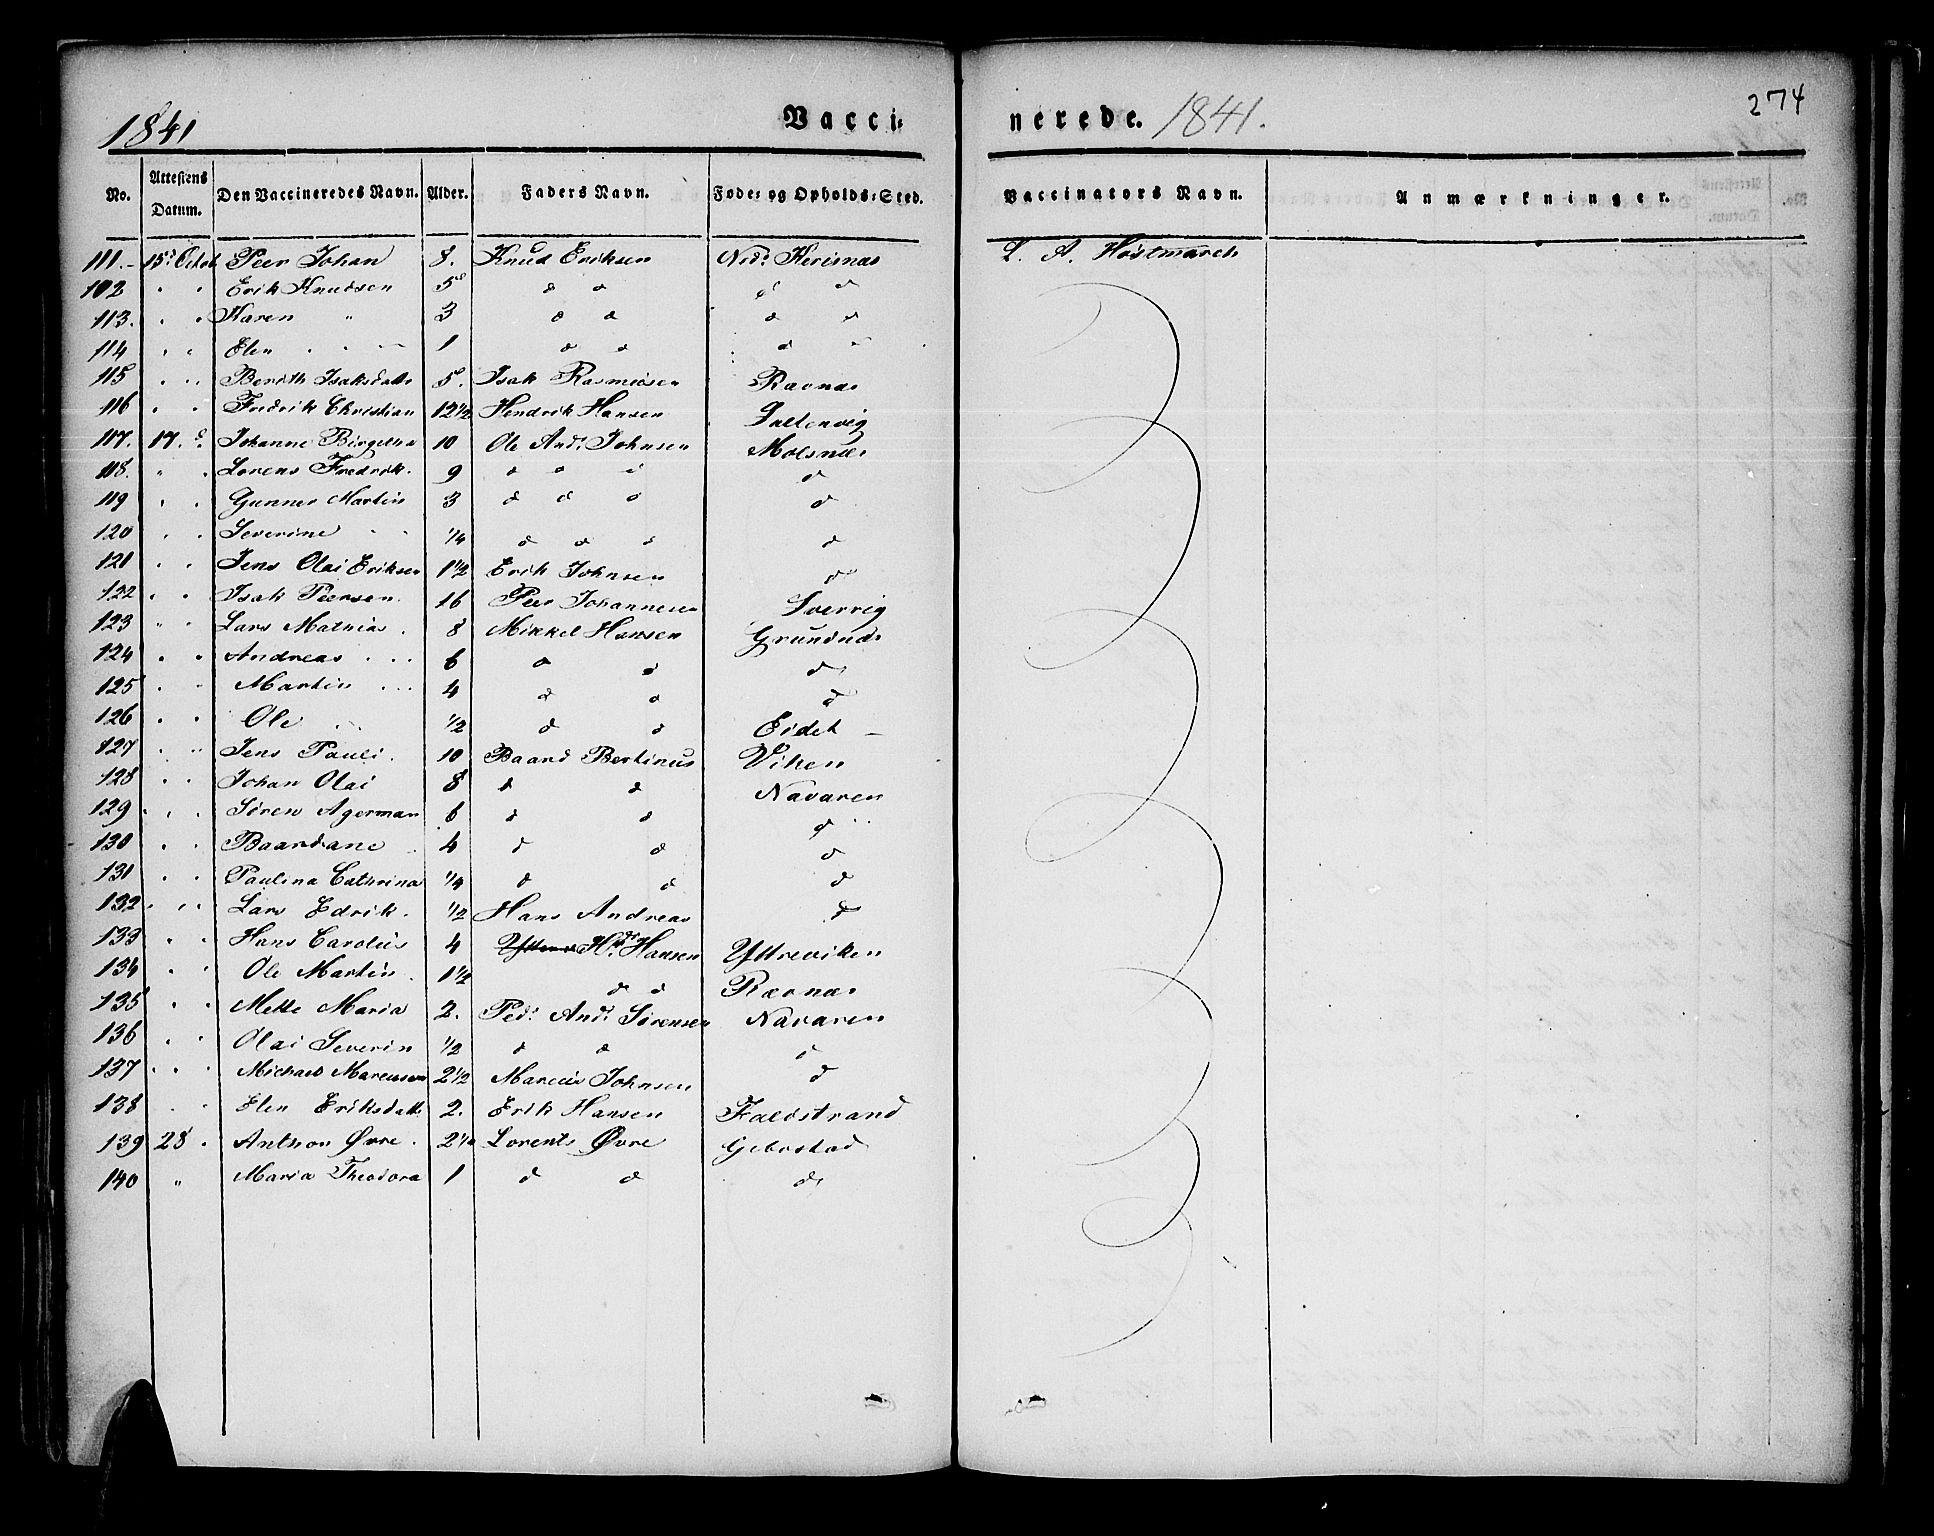 1841 Vacci- nerede. 1841. 274
No. Attestens Datum. Den Vaccineredes Navn. Alder. Faders Navn. Føde- og Opholds-Sted. Vaccinators Navn. Anmærkninger.
111. 15de Octob Peer Johan 8. Knud Eriksen L. A. Høstmarch
102 " " Erik Knudsen 5 d d d d
113. " " Karen " 3 d d d d
114 " " Elen " 1 d d d "
115 " " Berith Isaksdatt 5. Isak Rasmusen Rævnæs
116 " " Fredrik Christian 12 1/2 Hendrik Hansen
117. 17. d. Johanne Birgettha 10 Ole And: Johnsen Molsnæs
118. " " Lorens Fredrik. 9 d d d d
119 " " Gunner Martin 3 d d d d
120 " " Severine " " 1/4 d d d d
121 " " Jens Olai Eriksen 1 1/2 Erik Johnsen d
122 " " Isak Peersen. 16 Peer Johannesen
123 " " Lars Mathias. 8 Mikkel Hansen Grundnæs
124 " " Andreas 6 d d d
125 " " Martin 4 d d d
126 " " Ole 1/2 d d Eidet
127 " " Jens Pauli. 10 Baard Bertinus Viken
128 " " Johan Olai 8 d d Navaren
129 " " Søren Agerman 6 d d d
130 " " Baardane 4 d d d
131 " " Paulina Cathrina 1/4 d d d
132 " " Lars Edrik. 1/2 Hans Andreas d
133 " " Hans Carolus 4 Hansen Yttreviken
134 " " Ole Martin. 1 1/2 d d Rævnæs
135 " " Mette Maria 2. Ped: And: Sørensen Navaren
136 " " Olai Severin 1/2 d d d
137 " " Michael Marcusen 2 1/2 Marcus Johnsen d
138 " " Elen Eriksdatt 2. Erik Hansen Faldstrand
139 28. Anthon Øvre. 2 Lorents Øvre Gebostad
140 " Maria Theodora 1 d d d